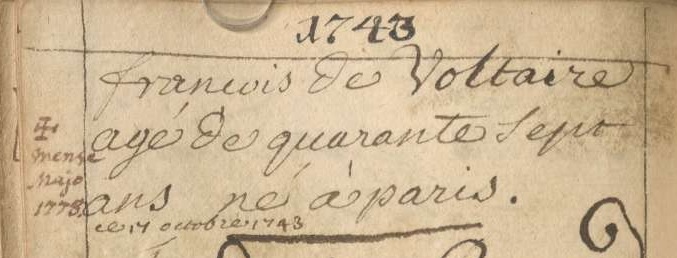 1743
francois de Voltaire
agé de quarante sept
ans né à paris.
ce 17 octobre 1743
✠
mense
Majo
1778.